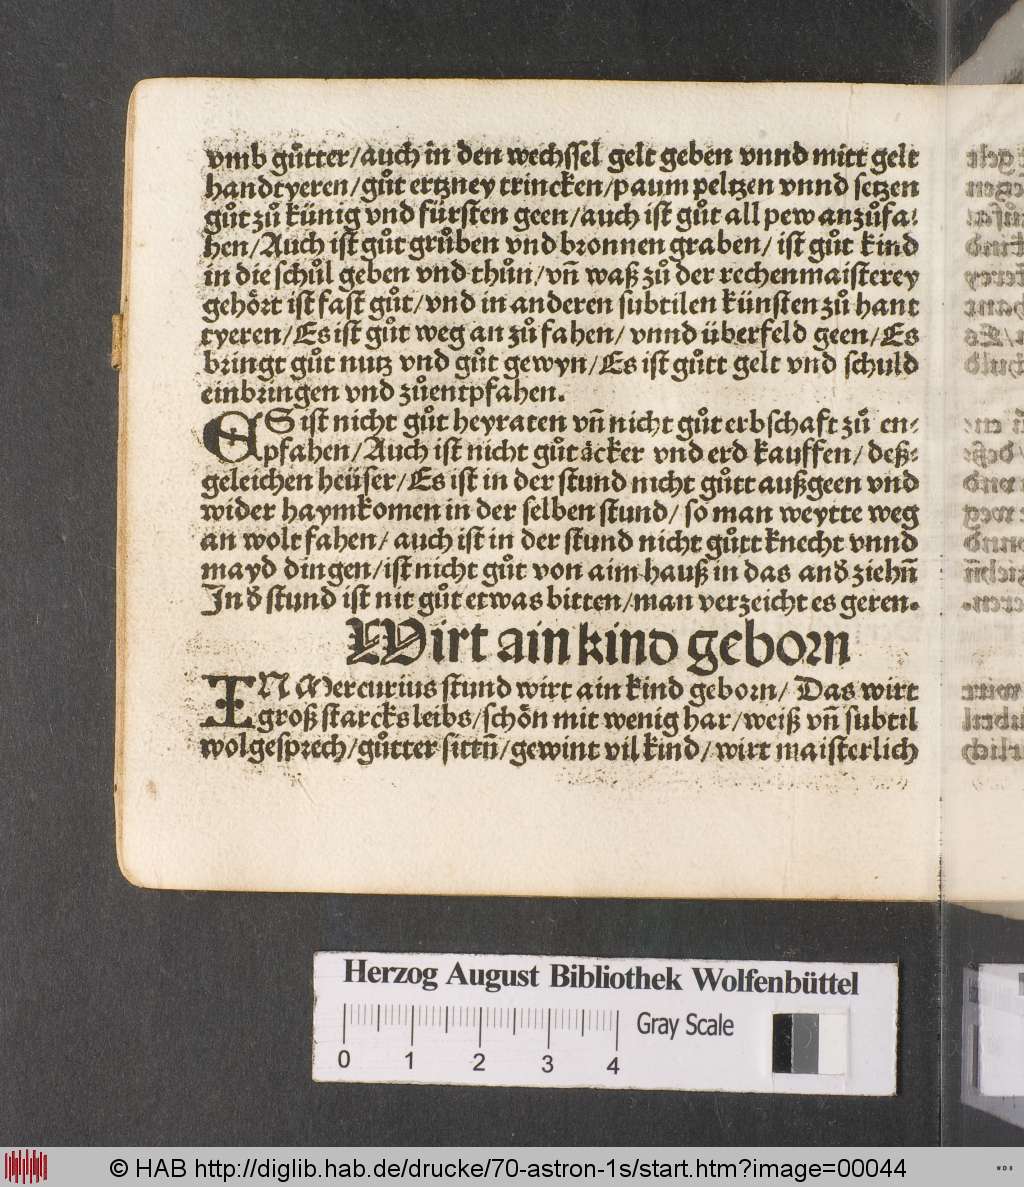 vmb gůtter/auch in den wechssel gelt geben vnnd mitt gelt
handtyeren/gůt ertzney trincken/paum peltzen vnnd setzen
gůt zů künig vnd fürsten geen/auch ist gůt all pew anzůfa⸗
hen/Auch ist gůt grůben vnd bronnen graben/ ist gůt kind
in die schůl geben vnd thůn/vn̄ waß zů der rechenmaisterey
gehört ist fast gůt/vnd in anderen subtilen künsten zů hant
tyeren/Es ist gůt weg an zů fahen/ vnnd überfeld geen/Es
bringt gůt nutz vnd gůt gewyn/Es ist gůtt gelt vnd schuld
einbringen vnd zůentpfahen.
ES ist nicht gůt heyraten vn̄ nicht gůt erbschaft zů en⸗
pfahen/Auch ist nicht gůt äcker vnd erd kauffen/ deß⸗
geleichen heüser/Es ist in der stund nicht gůtt außgeen vnd
wider haymkomen in der selben stund/ so man weytte weg
an wolt fahen/ auch ist in der stund nicht gůtt knecht vnnd
mayd dingen/ist nicht gůt von aim hauß in das and̄ ziehn̄
In d̄ stund ist nit gůt etwas bitten/man verzeicht es geren.
Wirt ain kind geborn
IN Mercurius stund wirt ain kind geborn/ Das wirt
groß starcks leibs/schön mit wenig har/weiß vn̄ subtil
wolgesprech/gůtter sittn̄/gewint vil kind/wirt maisterlich
Herzog August Bibliothek Wolfenbüttel
Gray Scale
0 1 2 3 4
© HAB http://diglib.hab.de/drucke/70-astron-1s/start.htm?image=00044